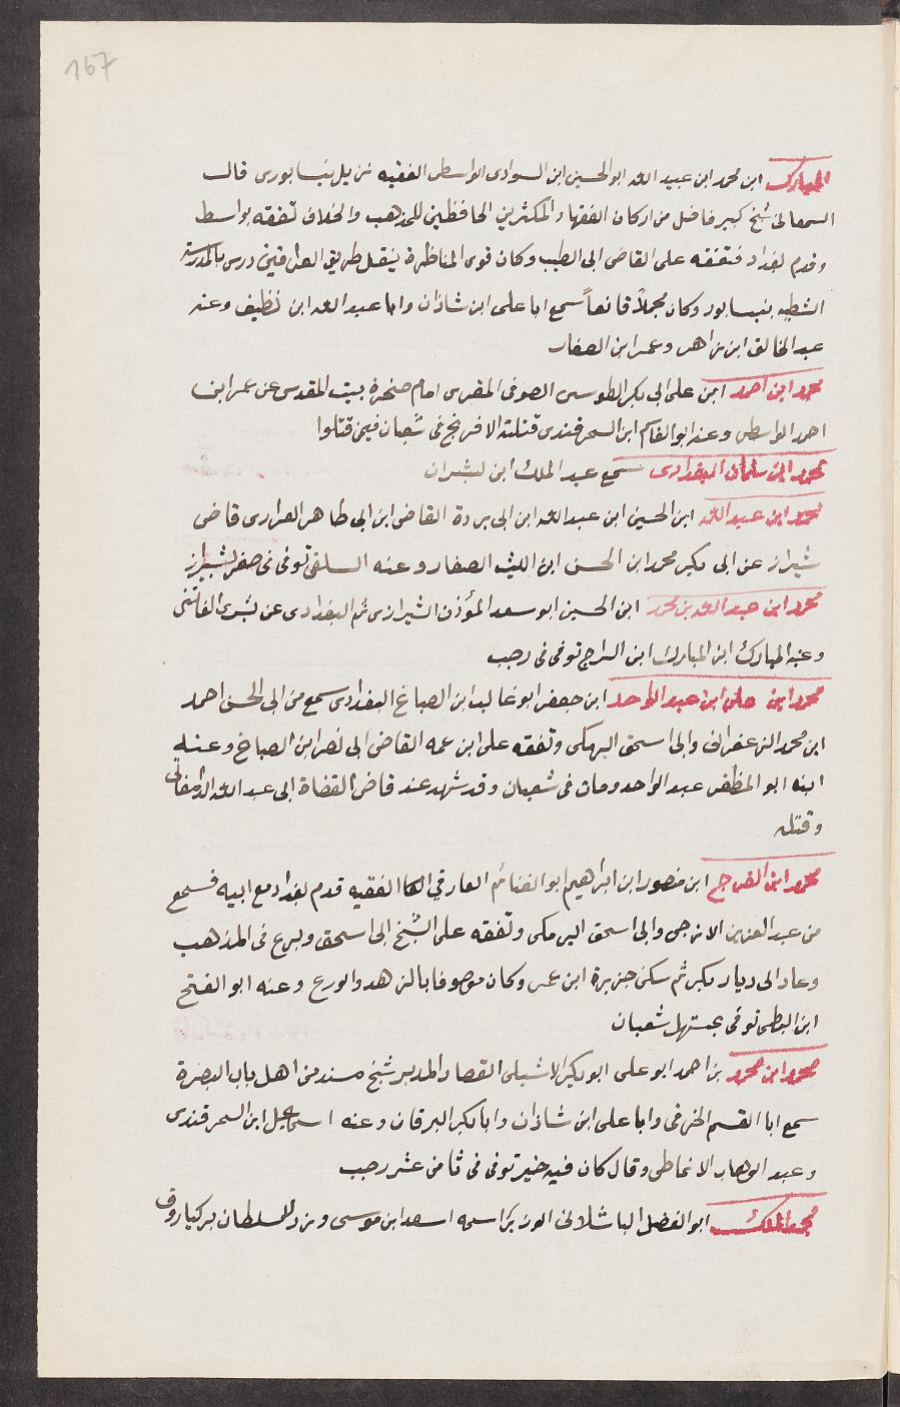 167
المبارك ابن محمد ابن عبيد الله ابو الحسين ابن السوادى الواسطى الفقيه نزيل نيسابورى قال
السمعانى شيخ كبير فاضل من اركان الفقهاء المكثرين الحافظين للمذهب والخلاف تفقه بواسط
وقدم بغداد فتفقه على القاضى ابى الطيب وكان قوى المناظرة ينقل طريق العراقيين درس بالمدرسة
الشطيه بنيسابور وكان مجملاً قانعاً سمع ابا على ابن شاذان وابا عبد الله ابن نظيف وعنه
عبد الخالق ابن زاهر وعمر ابن الصفار
محمد ابن احمد ابن على ابى بكر الطوسى الصوفى المقرى امام صخرة بيت المقدس عن عمر ابن
احمد الواسطى وعنه ابو القاسم ابن السمرقندى قتلته الافرنج فى شعبان فيمن قتلوا
محمد ابن سلمان البغدادى سمع عبد الملك ابن بشران
محمد ابن عبد الله ابن الحسين ابن عبد الله ابن ابى بردة القاضى ابن ابى طاهر الفزارى قاضى
شيراز عن ابى بكر محمد ابن الحسن ابن الليث الصفار وعنه السلفى توفى فى صفر بشيراز
محمد ابن عبد الله بن محمد ابن الحسين ابو سعد المؤذن الشيرازى ثم البغدادى عن بشرى الفاتنى
وعنه المبارك ابن المبارك ابن السراج توفى فى رجب
محمد ابن على ابن عبد الواحد ابن جعفر ابو غالب ابن الصباغ البغدادى سمع من ابى الحسن احمد
ابن محمد الزعفرانى وابى اسحق البرمكى وتفقه على ابن عمه القاضى ابى نصر ابن الصباغ وعنه
ابنه ابو المظفر عبد الواحد ومات فى شعبان وقد شهد عند قاضى القضاة ابى عبد الله الدامغانى
وقتله
محمد ابن الفرج ابن منصور ابن ابراهيم ابو الغنائم الفارقي الفقيه قدم بغداد مع ابيه فسمع
من عبد العزيز الازجى وابى اسحق البرمكى وتفقه على الشيخ ابى اسحق وبرع فى المذهب
وعاد الى ديار بكر ثم سكن جزيرة ابن عمر وكان موصوفا بالزهد والورع وعنه ابو الفتح
ابن البطى توفى بمستهل شعبان
محمد ابن محمد بن احمد ابو على ابو بكر الشبلى القصار المدبر شيخ مسند من اهل باب البصرة
سمع ابا القسم الخرقى وابا على ابن شاذان وابا بكر البرقان وعنه اسماعيل ابن السمرقندى
وعبد الوهاب الانماطى وقال كان فيه خير توفى فى ثامن عشر رجب
مجد الملك ابو الفضل الباشلانى الوزير اسمه اسعد ابن موسى وزر للسلطان بركياروق